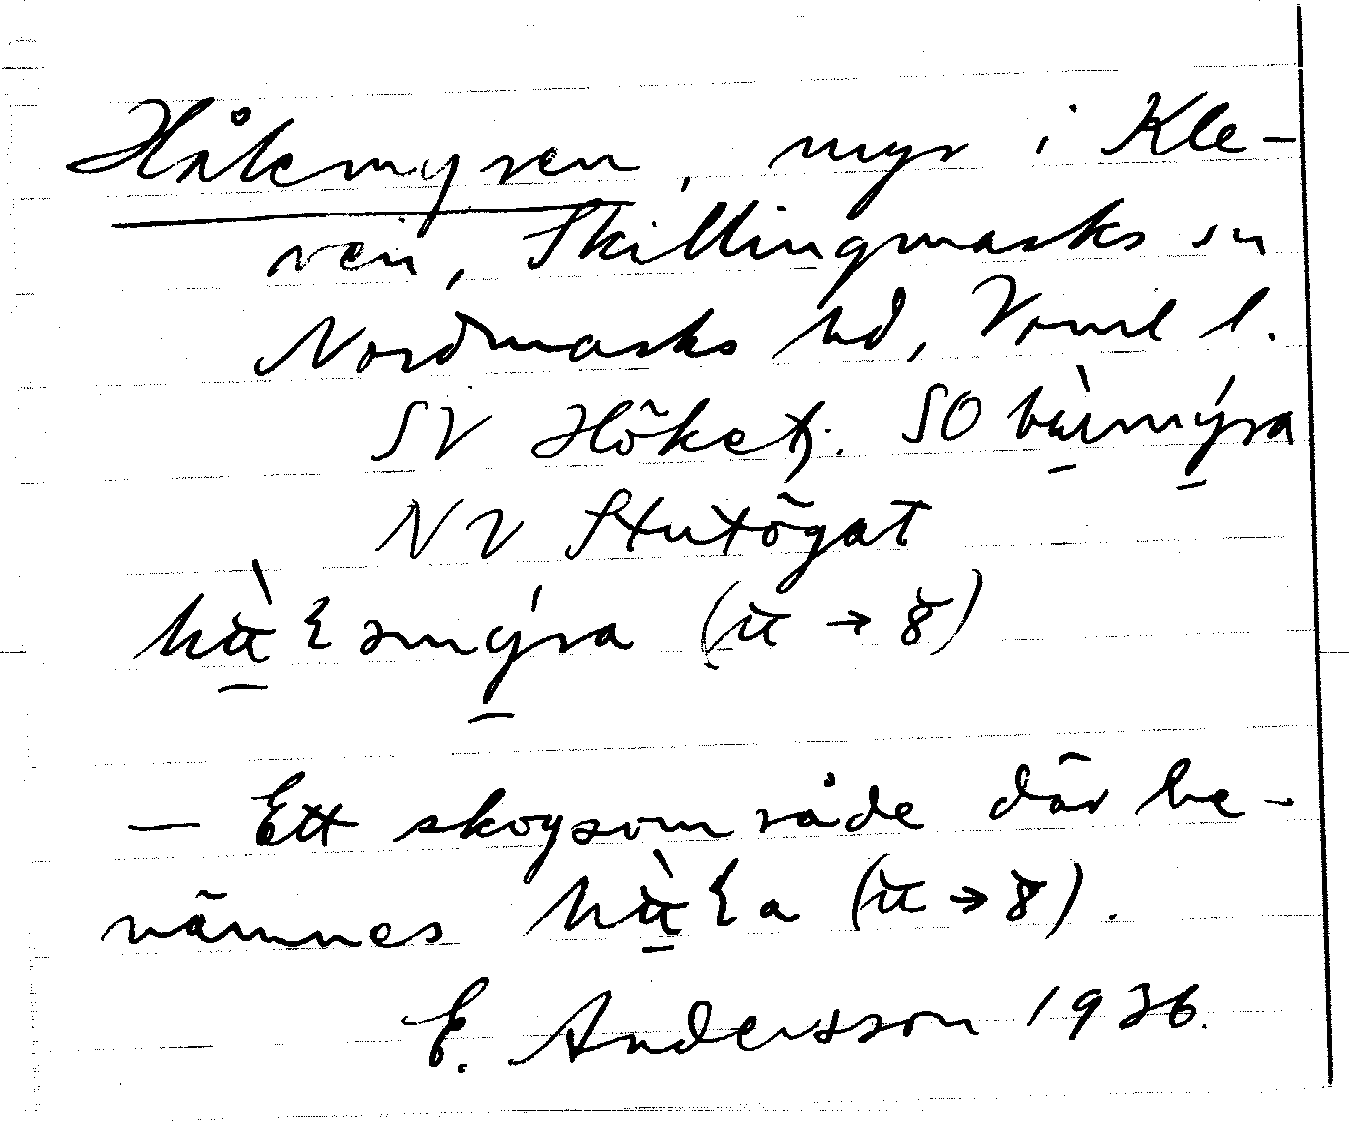 Hålemyren, myr i Kle-
ven, Skillingmarks sn
Nordmarks hd, Vrml l.
SV Höket. SO
NV Stutögat
(ʉ → 8)
— Ett skogsområde där be-
nämnes
E. Andersson 1936.